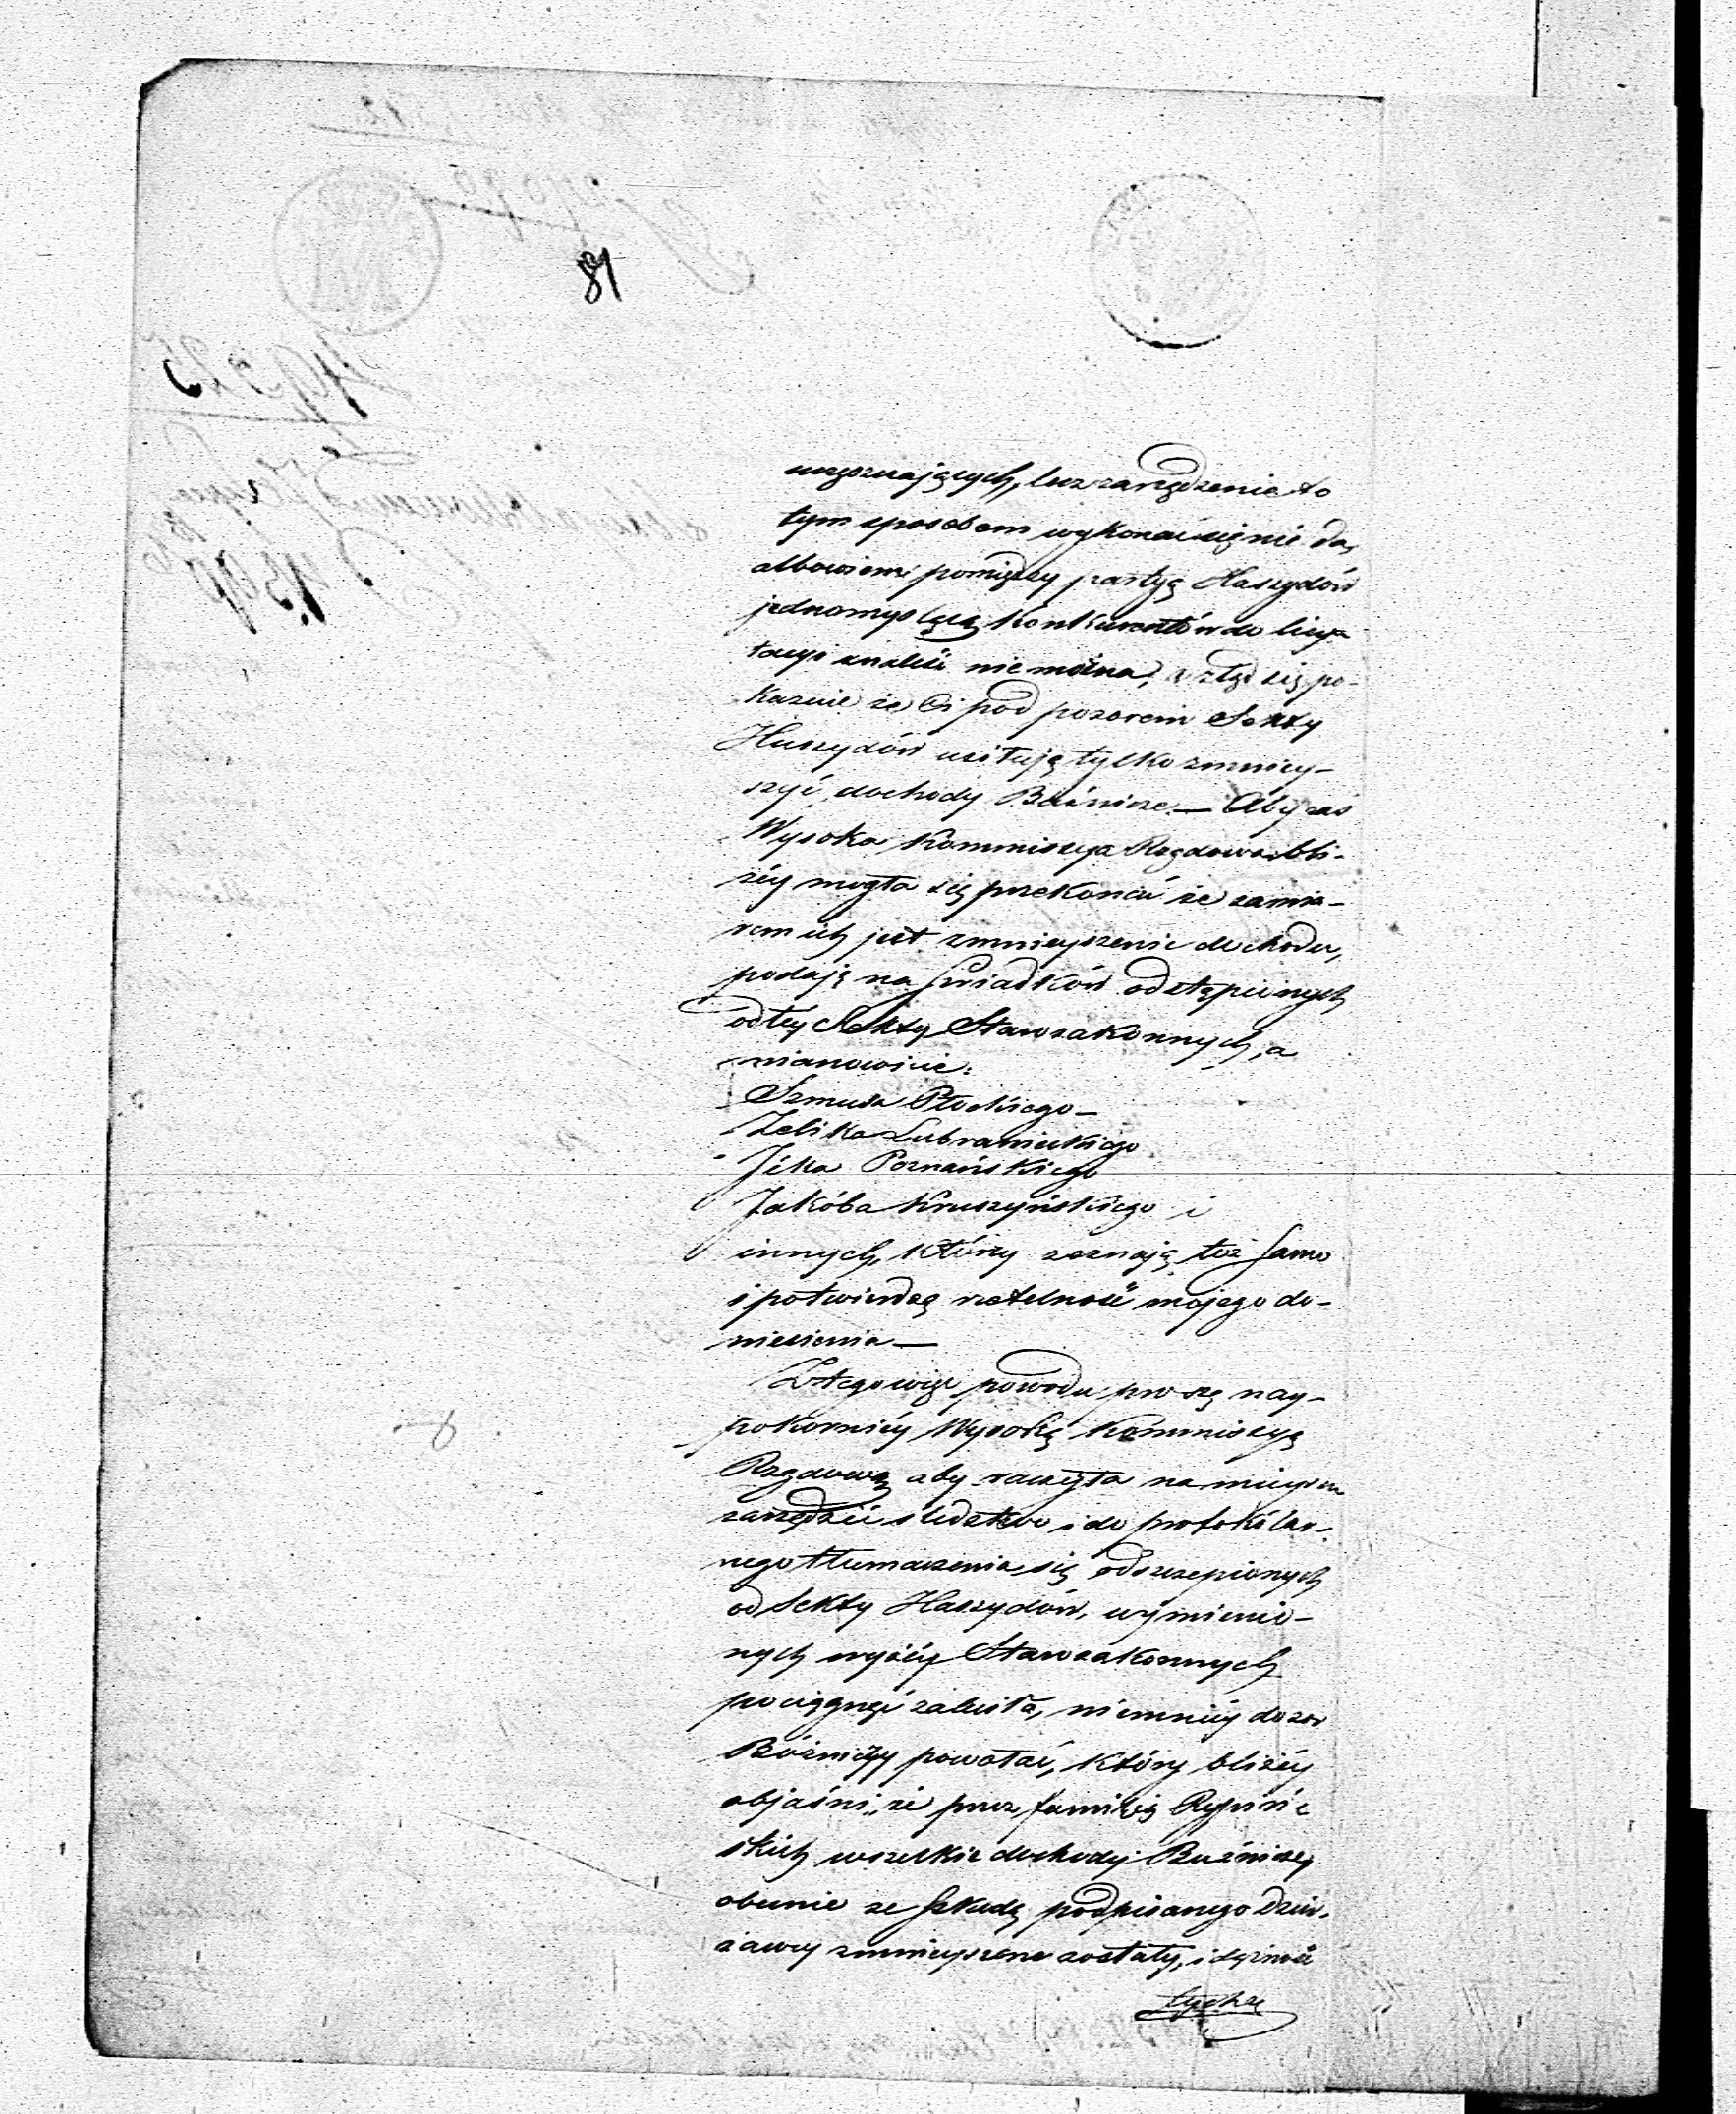 81
uczęszczających, lecz zarządzenie to
tym sposobem wykonać się nie da,
albowiem pomiędzy partyą Haszydów
jednomyślącą Konkurentów do licy-
tacyi znaleść nie można, a ztąd się po-
kazuie że Ci pod pozorem Sekty
Huszydów usiłują tylko zmniey-
szyć dochody Bóźnicze. — Aby zaś
Wysoka Kommissya Rządowa bli-
żéy mogła się przekonać że zamia-
rem ich jest zmnieyszenie dochodu,
podaję na Swiadków odstąpionych
od téy Sekty Starozakonnych, a
mianowicie:
Szmula Płockiego —
Zelika Lubranieckiego
Jcka Poznańskiego
Jakóba Kruszyńskiego i
innych, którzy zeznają toż samo
i potwierdzą rzetelność mojego do-
niesienia —
Z tego więc powodu proszę nay-
pokorniéy Wysoką Kommissyą
Rządową aby raczyła na mieyscu
zarządzić śledztwo i do protokólar-
nego tłumaczenia się odszczepionych
od Sekty Haszydów, wymienio-
nych wyżéy Starozakonnych
pociągnąć zaleciła, niemniéy dozor
Bóżniczy powołać, który bliżéy
objaśni, że przez familią Rypiń-
skich wszelkie dochody Bużniczey
obecnie ze szkodą podpisanego Dzier-
żawcy zmnieyszone zostały, i dążność
tychże